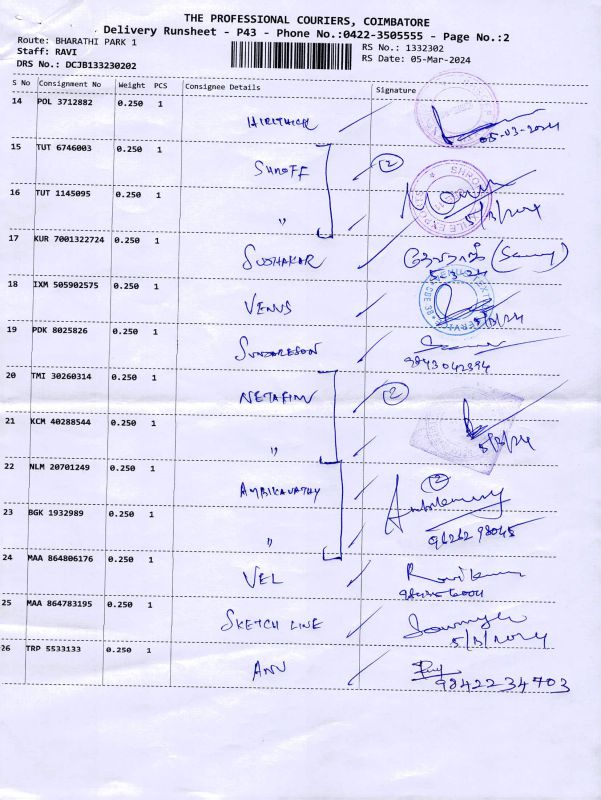 THE PROFESSIONAL COURIERS, COIMBATORE
Delivery Runsheet - P43 - Phone No.:0422-3505555 - Page No.:2
Route: BHARATHI PARK 1
RS No.: 1332302
Staff: RAVI
RS Date: 05-Mar-2024
DRS No.: DCJB133230202
S No Consignment No Weight PCS Consignee Details Signature
14 POL 3712882 0.250 1
05-03-2024
15 TUT 6746003 0.250 1 SUNOFF 2
16 TUT 1145095 0.250 1 "
5/3/24
17 KUR 7001322724 0.250 1 SUDHAKAR
5-3-24
18 IXM 505902575 0.250 1 VENUS
5/3/24
19 PDK 8025826 0.250 1 SUNDARESON
9843042394
20 TMI 30260314 0.250 1 NETAFIM 2
21 KCM 40288544 0.250 1 "
5/3/24
22 NLM 20701249 0.250 1 AMBIKAVATHY 2
23 BGK 1932989 0.250 1 "
96262 98045
24 MAA 864806176 0.250 1 VEL Ravikumar
25 MAA 864783195 0.250 1 SKETCH LINE Sowmya
5/3/2024
26 TRP 5533133 0.250 1 ANU
9842234703